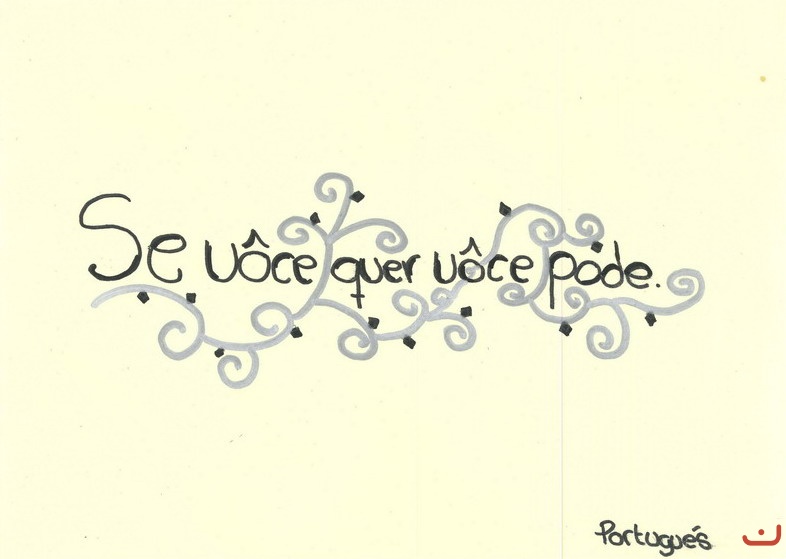 Se vôce quer vôce pode.
Portugués